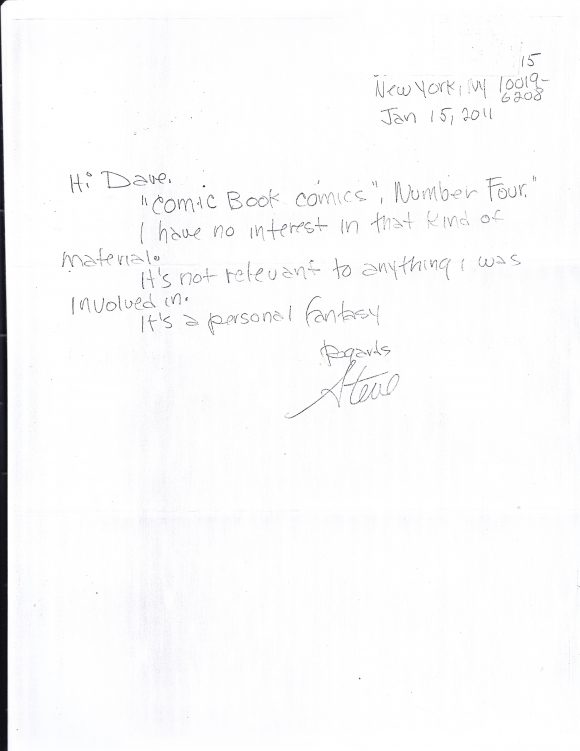 15
New York, NY 10019-
6208
Jan 15, 2011
Hi Dave.
"Comic Book comics", Number Four."
I have no interest in that kind of
material.
It's not relevant to anything I was
involved in.
It's a personal fantasy
Regards
Steve